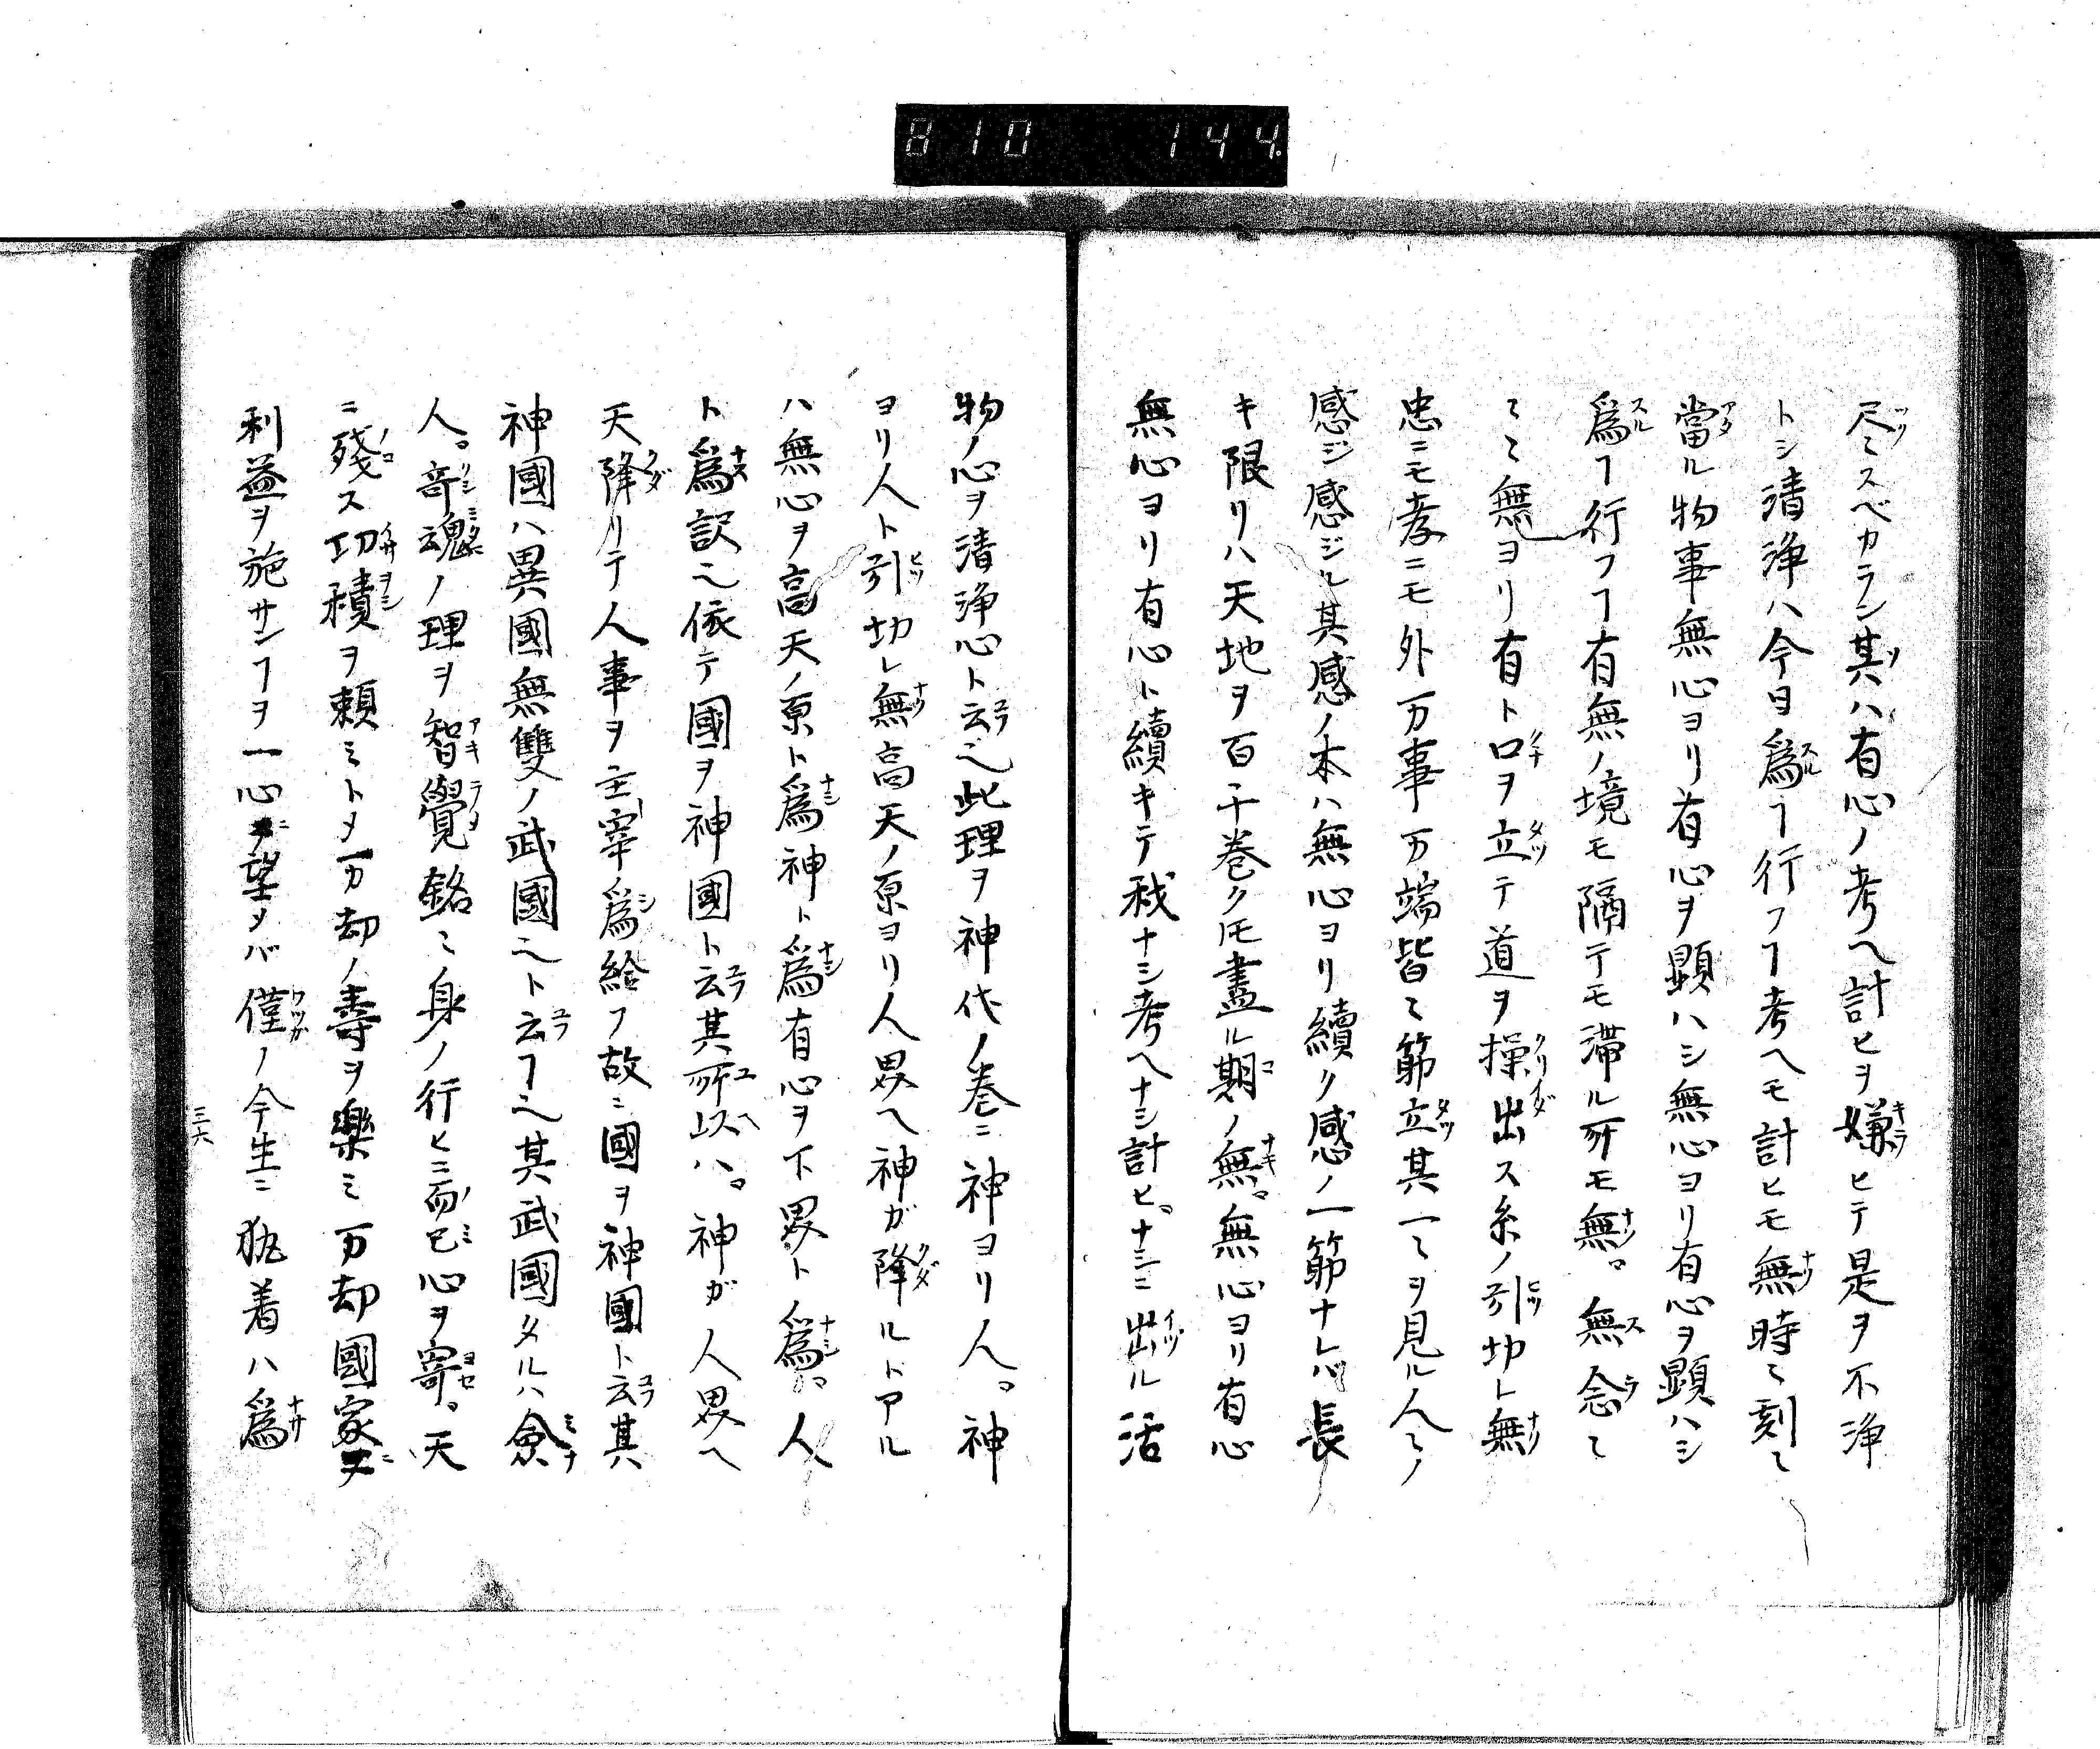 810 144.
尽ミスベカラン其ハ有心ノ考ヘ計ヒヲ嫌ヒテ是ヲ不浄
トシ清浄ハ今日爲ヿ行フヿ考ヘモ計ヒモ無時〻刻〻
當ル物事無心ヨリ有心ヲ顕ハシ無心ヨリ有心ヲ顕ハシ
爲ヿ行フヿ有無ノ境モ隔テモ滞ル所モ無。無念〻
〻〻無ヨリ有ト口ヲ立テ道ヲ操出ス糸ノ引切レ無
忠ニモ孝ニモ外万事万端皆〻筋立其一〻ヲ見ル人〻ノ
感ジ感ジル其感ノ本ハ無心ヨリ續ク感ノ一筋ナレバ長
キ限リハ天地ヲ百千巻クトモ盡ル期ノ無。無心ヨリ有心
無心ヨリ有心ト續キテ我ナシ考ヘナシ計ヒ。ナシニ出ル活
物ノ心ヲ清浄心ト云也此理ヲ神代ノ巻ニ神ヨリ人。神
ヨリ人ト引切レ無高天ノ原ヨリ人界ヘ神ガ降ルトアル
ハ無心ヲ高天ノ原ト爲神ト爲有心ヲ下界ト爲。人
ト爲訳也依テ國ヲ神國ト云其所以ハ。神ガ人界ヘ
天降リテ人事ヲ主宰爲給フ故ニ國ヲ神國ト云其
神國ハ異國無雙ノ武國也ト云ヿ也其武國タルハ僉
人。奇魂ノ理ヲ智覺銘ニ身ノ行ヒニ而已心ヲ寄。天
ニ殘ス功積ヲ頼ミトメ万却ノ壽ヲ樂ミ万却國家ニ
利益ヲ施サンヿヲ一心ニ望メバ僅ノ今生ニ執着ハ爲
三六